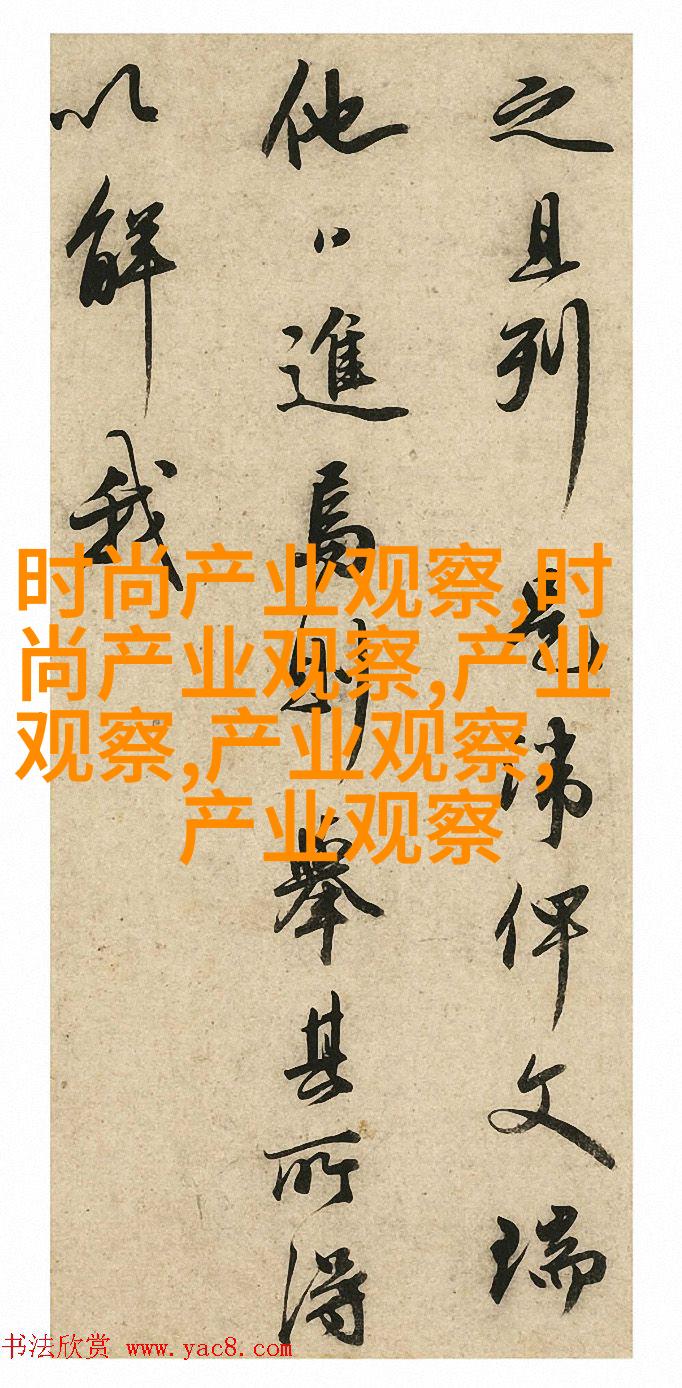 之且列是諱俾文瑞
他日進焉則舉其所得
以解我
时尚产业观察,时
尚产业观察,产业
观察,产业观察,
产业观察
书法欣赏 www.yac8.com